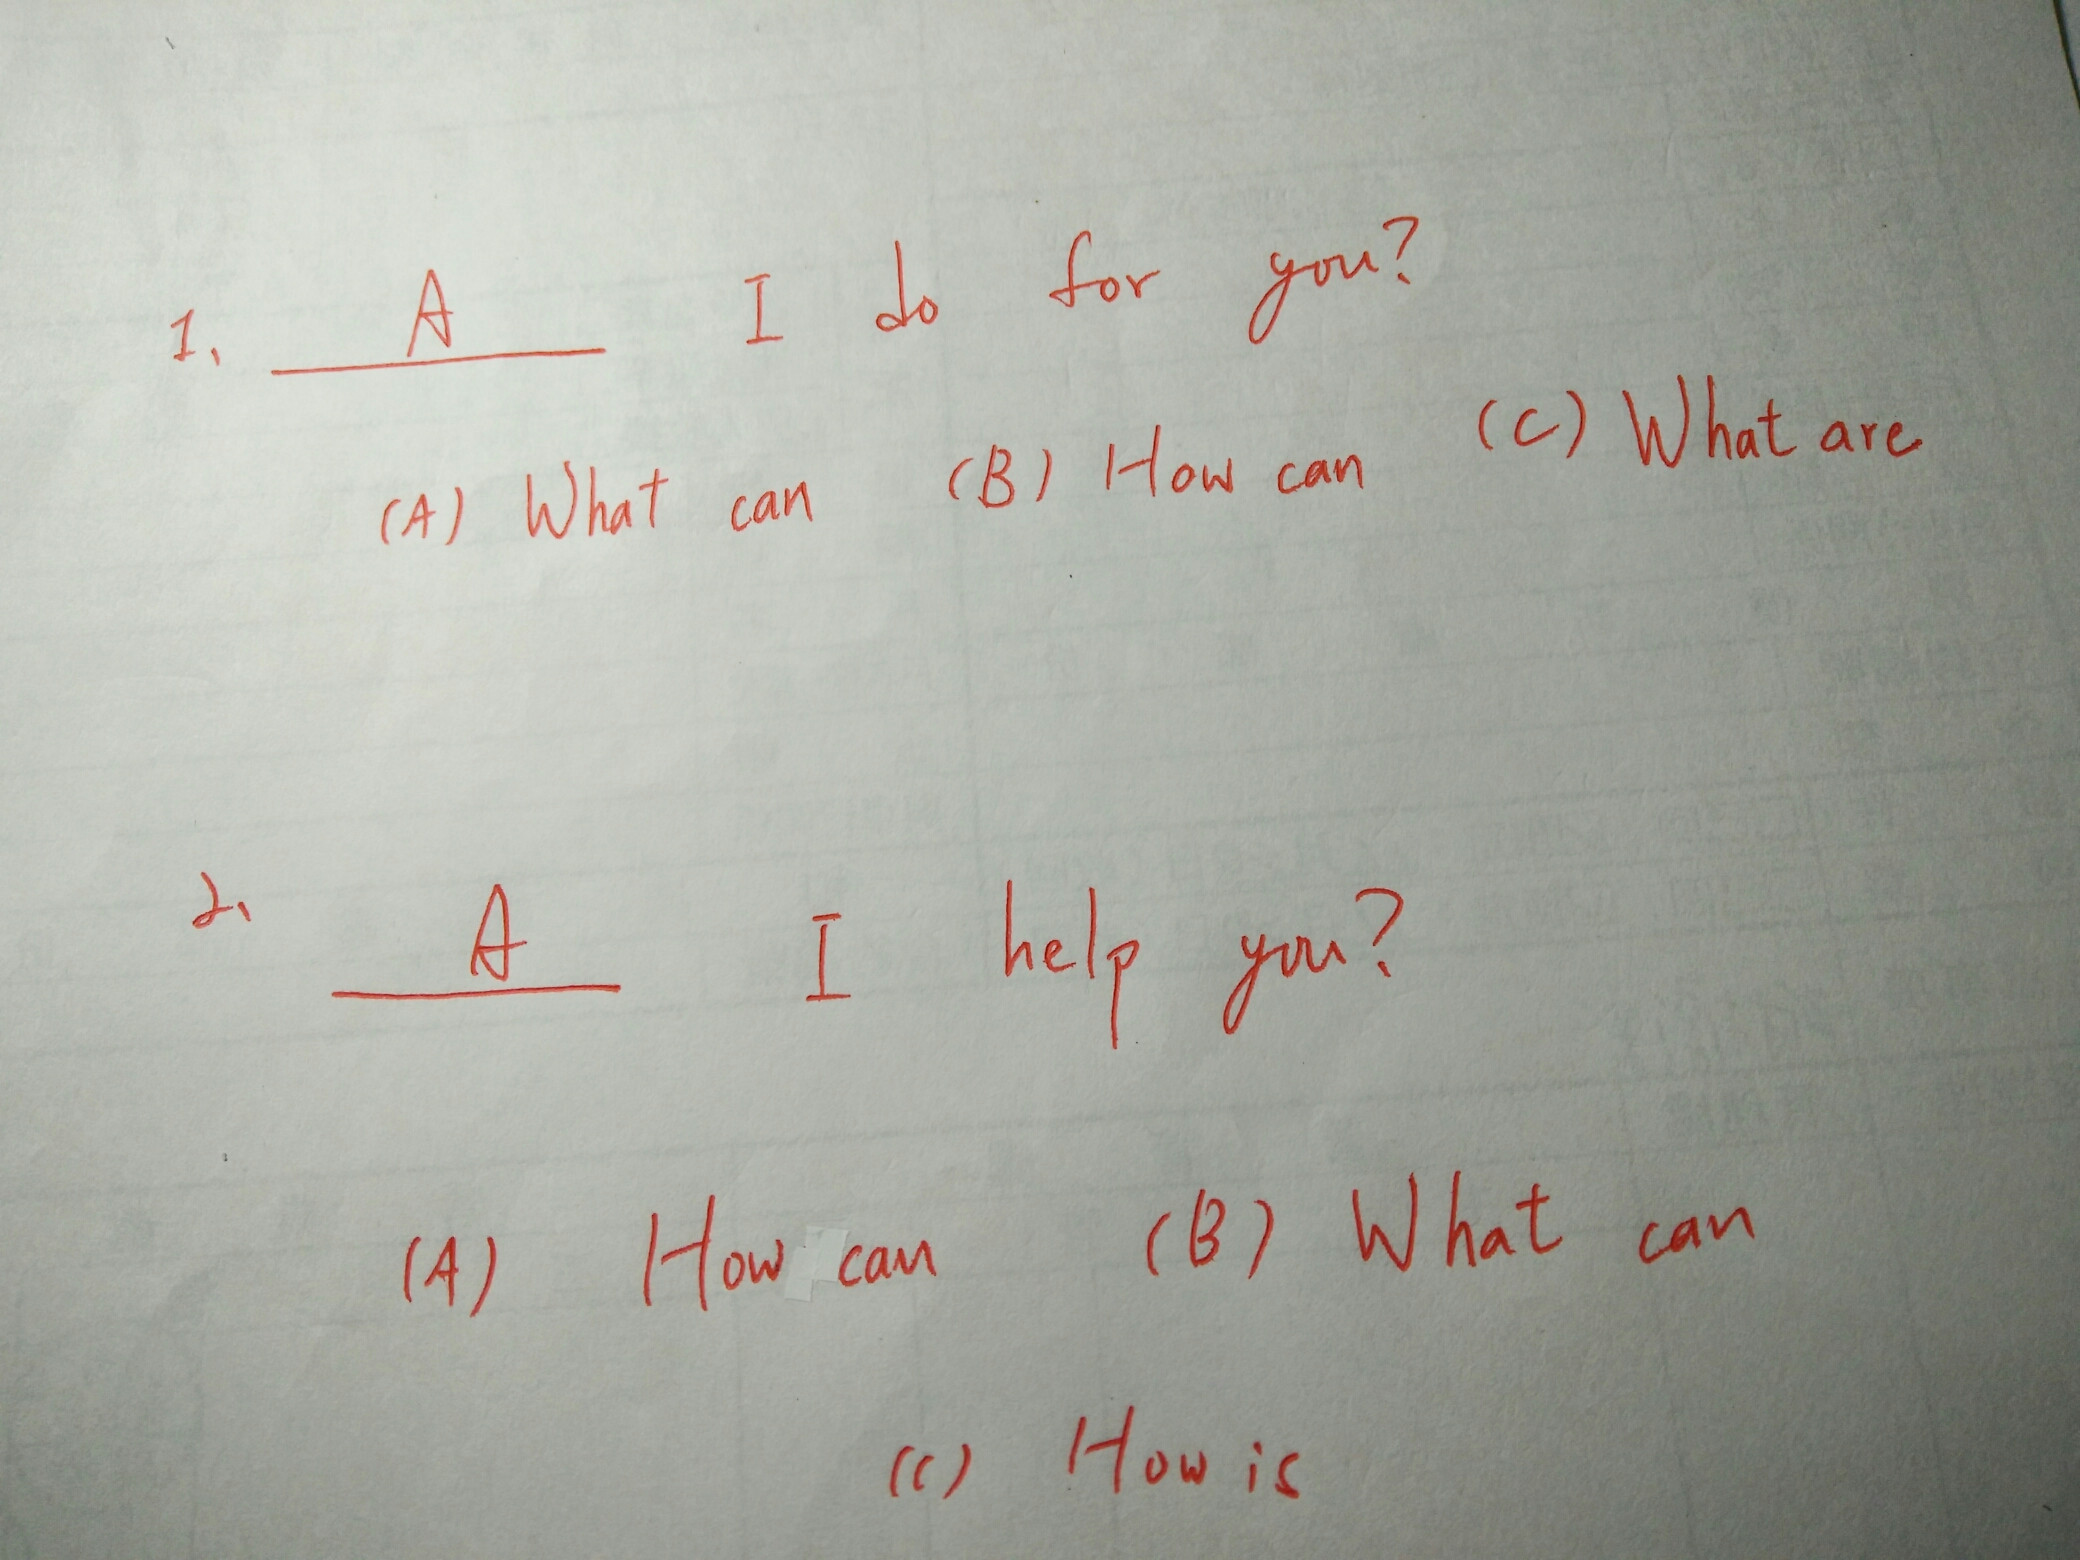 1. A I do for you?
(A) What can (B) How can (C) What are
2. A I help you?
(A) How can (B) What can
(C) How is